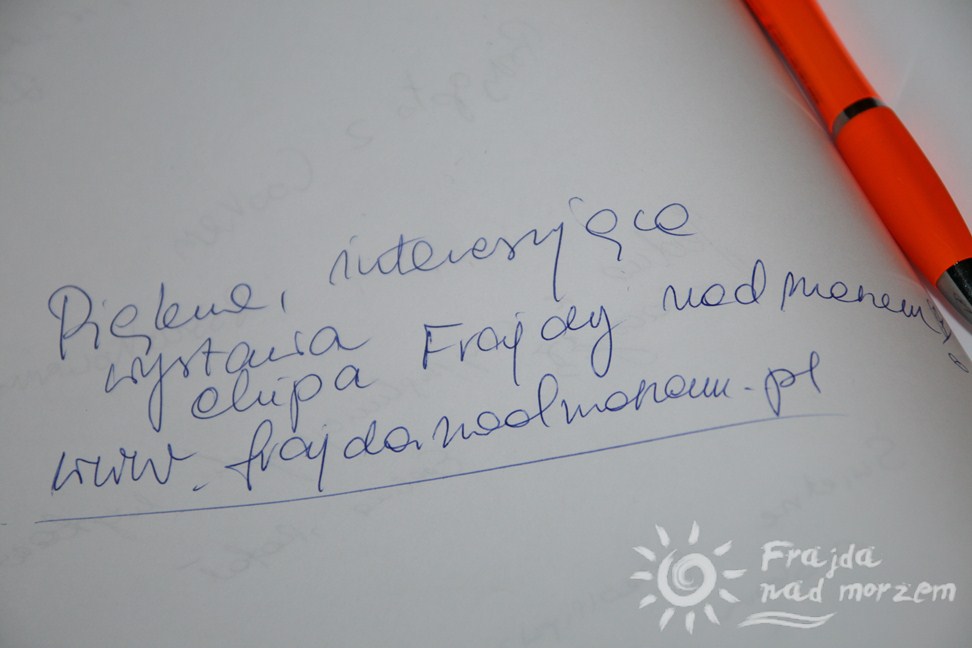 Piękna, interesująca
wystawa
ekipa Frajdy nad morzem
www.frajdanadmorzem.pl
Frajda
nad morzem